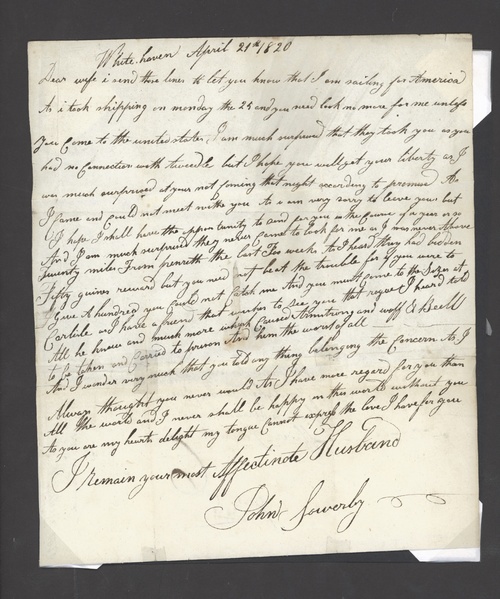 White-haven April 21th 1820
Dear wife i send these lines to let you know that I am sailing for America
As i took shipping on monday the 24 and you need look no more for me unless
You Come to the united states, I am much surprised that they took you as you
had no Connection with tweedle but I hope you will get your liberty as I
was much surprised at your not Coming that night according to promised As
I Came and Could not meet withe you As i am very sorry to leave you but
I hope I shall have the opportunity to send for you in the Course of a year or so
And I am much surprised they never Came to look for me as I was never Above
twenty miles From penrith the last Four weeks to I heard they had bidden
Fifty guines reward but you need not beat the trouble for if you were to
Give A hundred you Could not Catch me And you must Come to the at
Carlisle as I have a friend that wishes to see you that I heard told
All he knew and much more which Caused Armstrong and wiff &
to be taken and Carried to prison And him the worst of all
And I wonder very much that you told any thing belonging the Concern As I
Always thought you never would As I have more regard for you than
All the world and I never shall be happy in this world without you
As you are my hearts delight my tongue Cannot express the love I have for you
I remain your most Affectinote Husband
John Sowerby